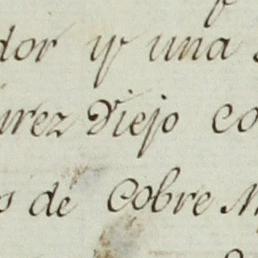 dor y una
urez Viejo co
s de Cobre